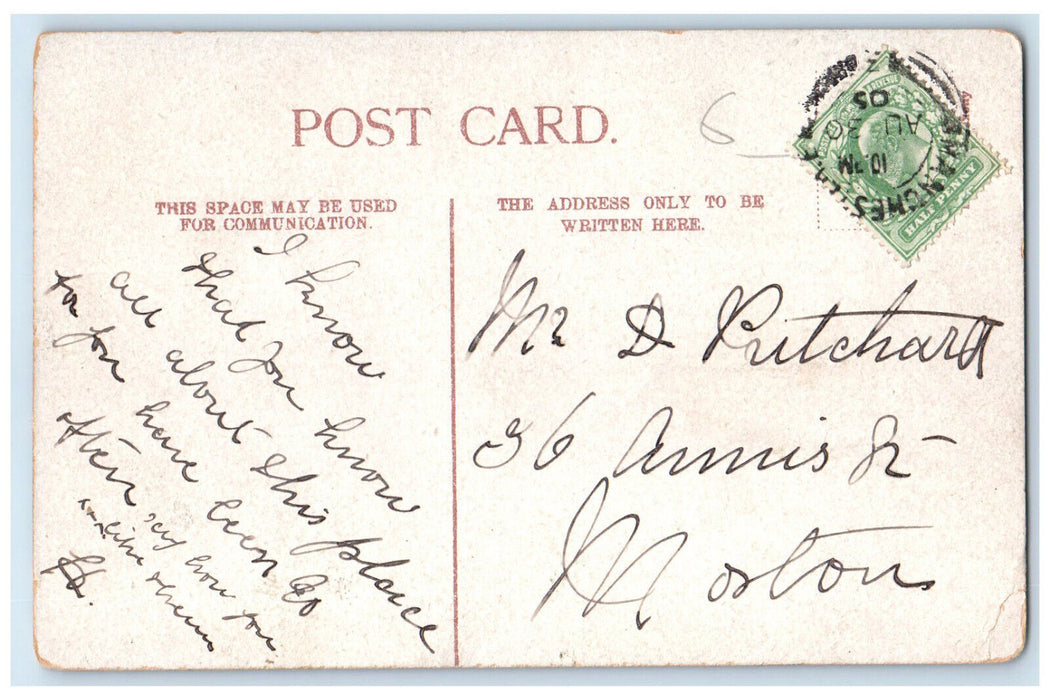 POST CARD.
6
THIS SPACE MAY BE USED
FOR COMMUNICATION.
THE ADDRESS ONLY TO BE
WRITTEN HERE.
I know
that you know
all about this place
for you have been so
often say how you
like them
H.
Mr D Pritchard
36 Annis St
Moston
MANCHES
10 PM
AU 30
05
HALF PENNY